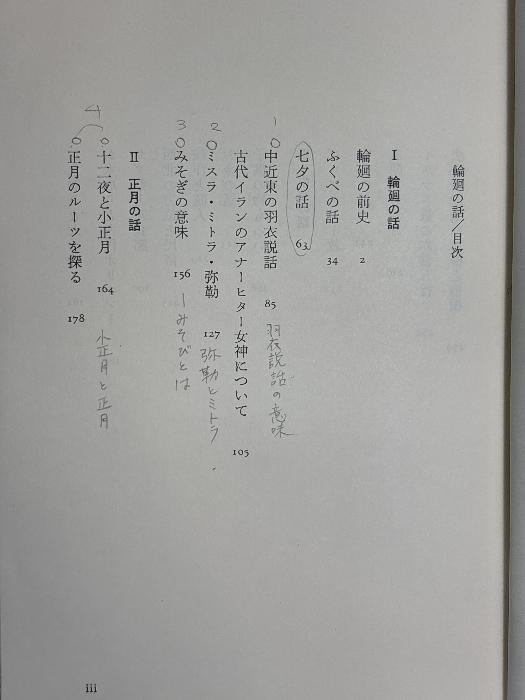 輪廻の話／目次
Ⅰ　輪廻の話
輪廻の前史　2
ふくべの話　34
七夕の話　63
1
○中近東の羽衣説話　85　羽衣説話の意味
古代イランのアナーヒター女神について　105
2
○ミスラ・ミトラ・弥勒　127　弥勒とミトラ
3
○みそぎの意味　156　ーみそびとは
Ⅱ　正月の話
4
○十二夜と小正月　164　小正月と正月
○正月のルーツを探る　178
iii